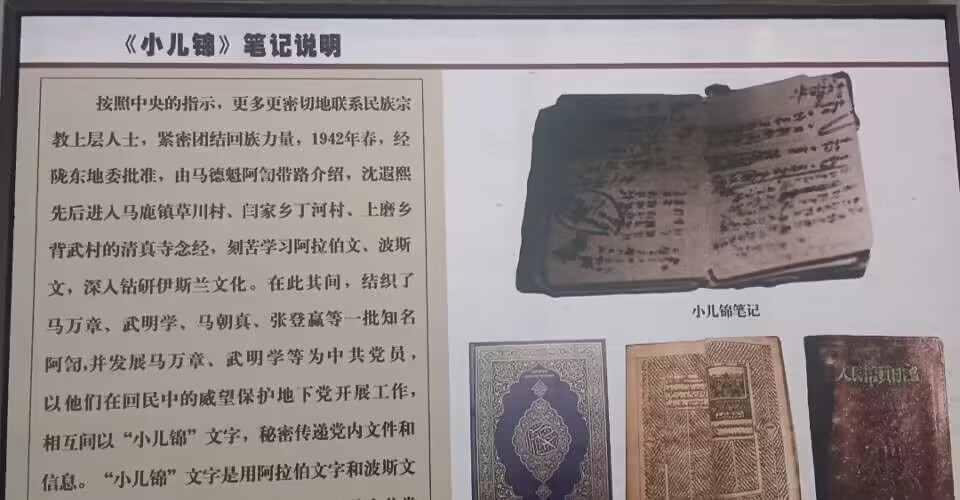 《小儿锦》笔记说明
按照中央的指示，更多更密切地联系民族宗
教上层人士，紧密团结回族力量，1942年春，经
陇东地委批准，由马德魁阿訇带路介绍，沈遐熙
先后进入马鹿镇草川村、闫家乡丁河村、上磨乡
背武村的清真寺念经，刻苦学习阿拉伯文、波斯
文，深入钻研伊斯兰文化。在此其间，结织了
马万章、武明学、马朝真、张登赢等一批知名
阿訇,并发展马万章、武明学等为中共党员，
以他们在回民中的威望保护地下党开展工作，
相互间以“小儿锦”文字，秘密传递党内文件和
信息。“小儿锦”文字是用阿拉伯文字和波斯文
小儿锦笔记